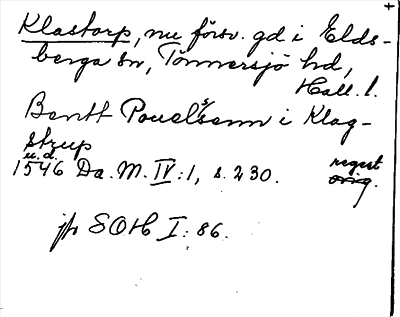 Klastorp, nu försv. gd i Elds-
berga sn, Tönnersjö hd,
Hall. l.
Bentt Pouelssenn i Klag-
strup
u.d.
1546 Da. M. IV: 1, s. 230. regest
orig.
jfr SOH I: 86.